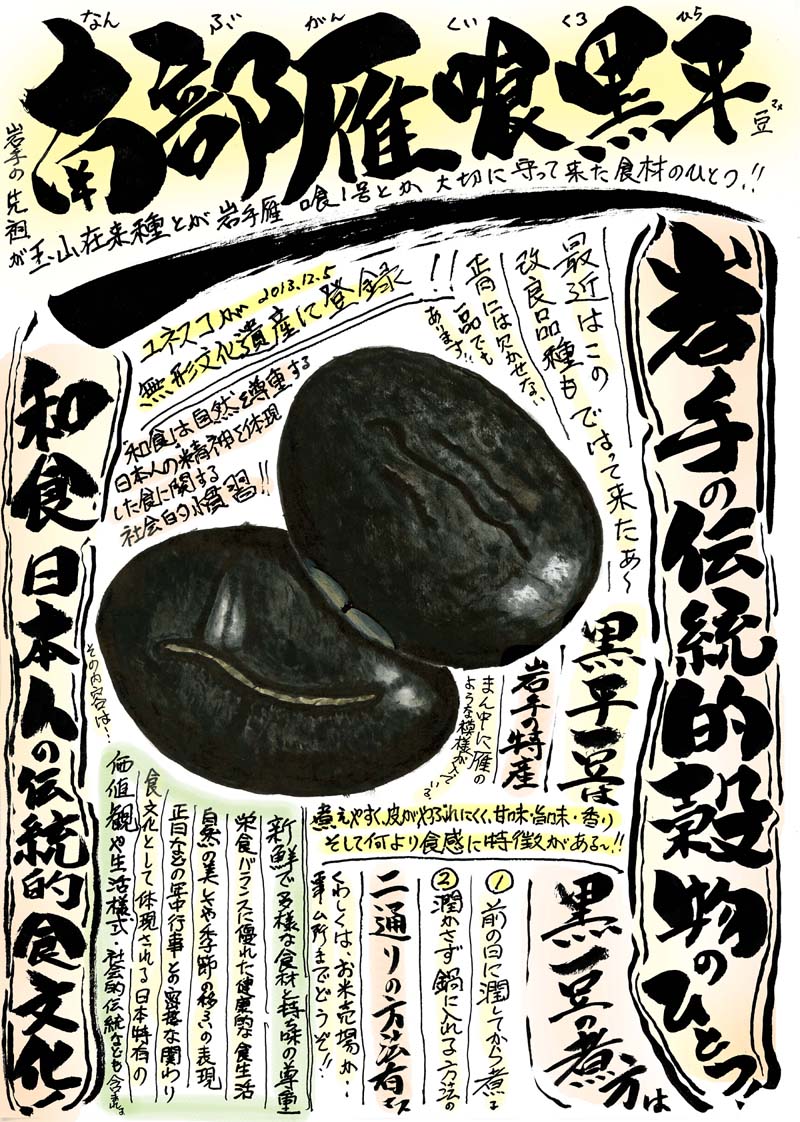 なん ぶ がん くい くろ ひら
南部雁喰黒平豆
マメ
岩手の先祖
が玉山在来種とが岩手雁喰1号とか大切に守って来た食材のひとつ!!
岩手の伝統的穀物のひとつ!
最近はこの
改良品種も
でまわって来たあ〜
正月には欠かせない
一品でも
あります!!
ユネスコが 2013.12.5
無形文化遺産に登録!!
「和食」は自然を尊重する
日本人の精神を体現
した食に関する
社会的慣習!!
和食 日本人の伝統的食文化!
その内容は…
黒平豆は
岩手の特産
まん中に雁の
ような模様が入ってる
煮えやすく、皮がやぶれにくく、甘味・旨味・香り
そして何より食感に特徴がある〜!!
黒豆の煮方は
① 前の日に潤してから煮る
② 潤かさず鍋に入れる方法の
二通りの方法有ます
くわしくは、お米売場か…
事ム所までどうぞ!!
新鮮で多様な食材と持ち味の尊重
栄養バランスに優れた健康的な食生活
自然の美しさや季節の移ろいの表現
正月などの年中行事との密接な関わり
食文化として体現される日本特有の
価値観や生活様式・社会的伝統なども含まれる